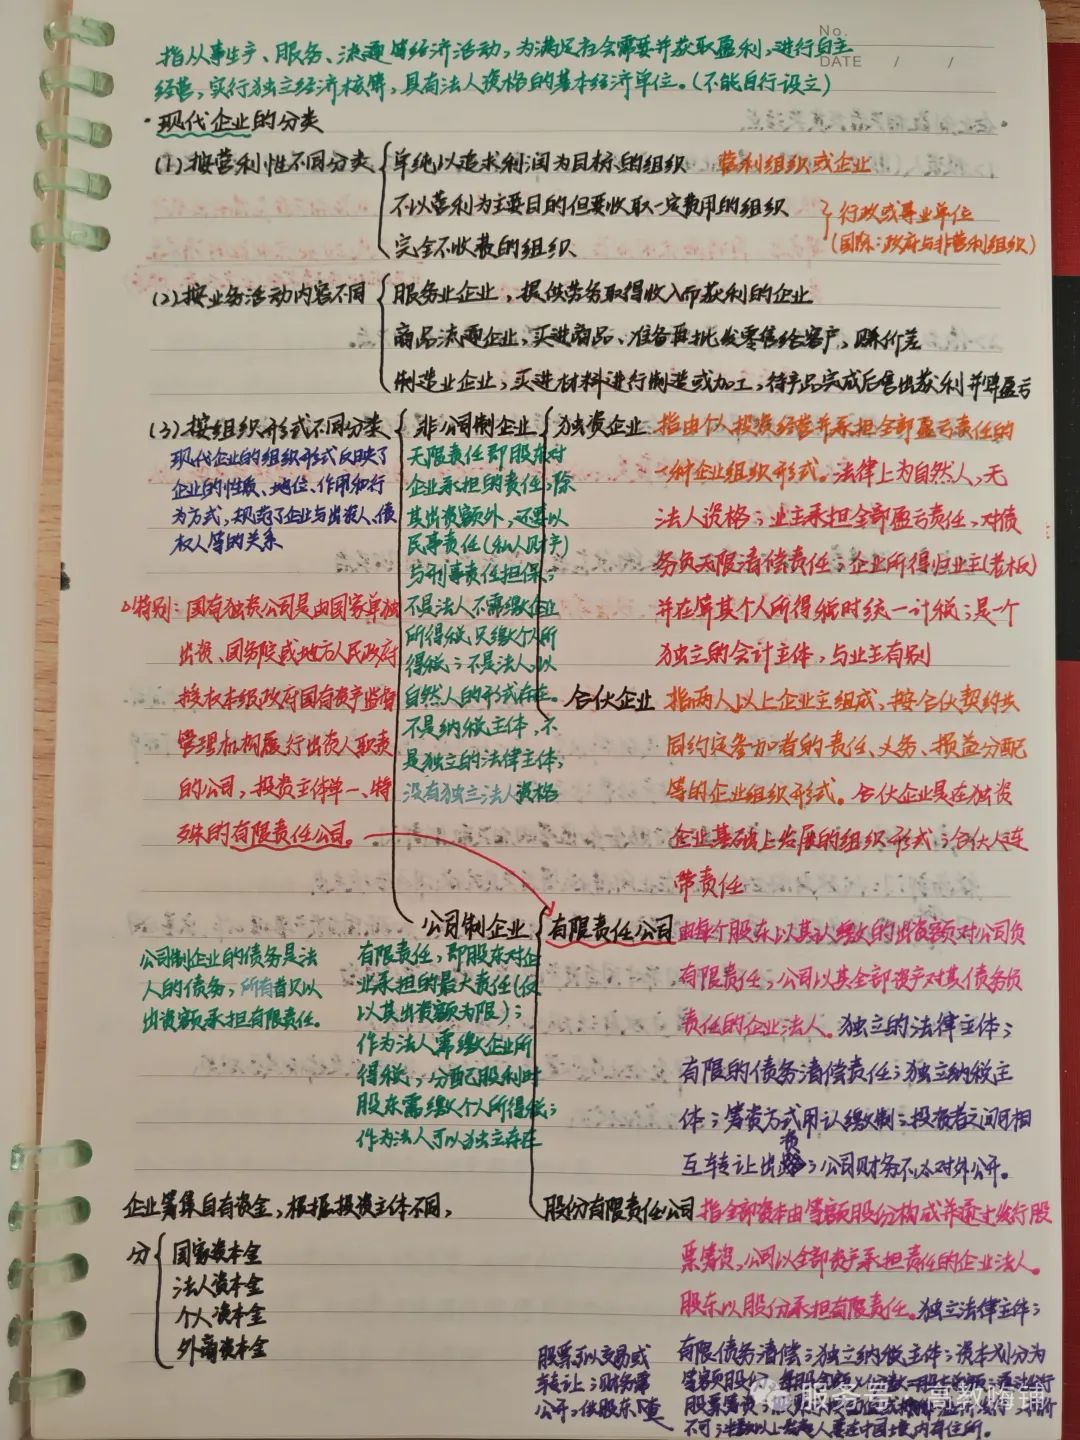 No.
DATE / /
指从事生产、服务、流通等经济活动,为满足社会需要并获取盈利,进行自主
经营,实行独立经济核算,具有法人资格的基本经济单位。(不能自行设立)
·现代企业的分类
(1).按营利性不同分类
单纯以追求利润为目标的组织 营利组织或企业
不以营利为主要目的但要收取一定费用的组织
完全不收费的组织
行政或事业单位
(国际:政府与非营利组织)
(2).按业务活动内容不同
服务业企业,提供劳务取得收入而获利的企业
商品流通企业,买进商品、准备再批发零售给客户,赚价差
制造业企业,买进材料进行制造或加工,待产品完成后售出获利并算盈亏
(3).按组织形式不同分类
现代企业的组织形式反映了
企业的性质、地位、作用和行
为方式,规范了企业与出资人、债
权人等的关系
特别:国有独资公司是由国家单独
出资、国务院或地方人民政府
授权本级政府国有资产监督
管理机构履行出资人职责
的公司,投资主体单一、特
殊的有限责任公司。
非公司制企业
无限责任即股东对
企业承担的责任,除
其出资额外,还要以
民事责任(私人财产)
与刑事责任担保;
不是法人不需缴企业
所得税,只缴个人所
得税;不是法人,以
自然人的形式存在。
不是纳税主体,不
是独立的法律主体,
没有独立法人资格
独资企业 指由个人投资经营并承担全部盈亏责任的
一种企业组织形式。法律上为自然人,无
法人资格;业主承担全部盈亏责任,对债
务负无限清偿责任;企业所得归业主(老板)
并在算其个人所得税时统一计税;是一个
独立的会计主体,与业主有别
合伙企业 指两人以上企业主组成,按合伙契约共
同约定参加者的责任、义务、损益分配
等的企业组织形式。合伙企业是在独资
企业基础上发展的组织形式;合伙人连
带责任
公司制企业
公司制企业的债务是法
人的债务,所有者只以
出资额承担有限责任.
有限责任,即股东对企
业承担的最大责任(仅
以其出资额为限);
作为法人需缴企业所
得税,分配股利时
股东需缴个人所得税;
作为法人可以独立存在
有限责任公司 由每个股东以其认缴的出资额对公司负
有限责任,公司以其全部资产对其债务负
责任的企业法人。独立的法律主体;
有限的债务清偿责任;独立纳税主
体;筹资方式用认缴制;投资者之间可相
互转让出资;公司财务不必对外公开。
股份有限责任公司 指全部资本由等额股份构成并通过发行股
票筹资,公司以全部资产承担责任的企业法人。
股东以股份承担有限责任。独立法律主体;
有限债务清偿;独立纳税主体;资本划分为
等额股份
股票筹资;
不可;半数以上发起人要在中国境内有住所。
股票可以交易或
转让;财务需
公开;供股东查
企业筹集自有资金,根据投资主体不同,
分
国家资本金
法人资本金
个人资本金
外商资本金
服务号·高教嗨铺